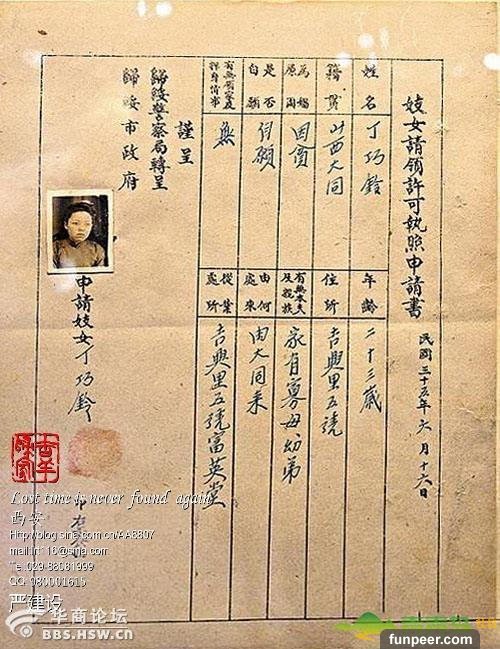 妓女請領許可執照申請書
民國三十五年六月十六日
姓名 丁巧鈴
年齡 二十三歲
籍貫 山西大同
住所 吉興里五號
為娼原因 因貧
有無丈夫及親族 家有寡母幼弟
是否自願 自願
由何處來 由大同來
無
從業處所 吉興里五號富英堂
謹呈
歸綏警察局轉呈
歸綏市政府
申請妓女丁巧鈴
Lost time is never found again
西安
Http://blog.sina.com.cn/AA8807
Te: 029-88081999
QQ: 980001615
严建设
华商论坛
BBS.HSW.CN
funpeer.com